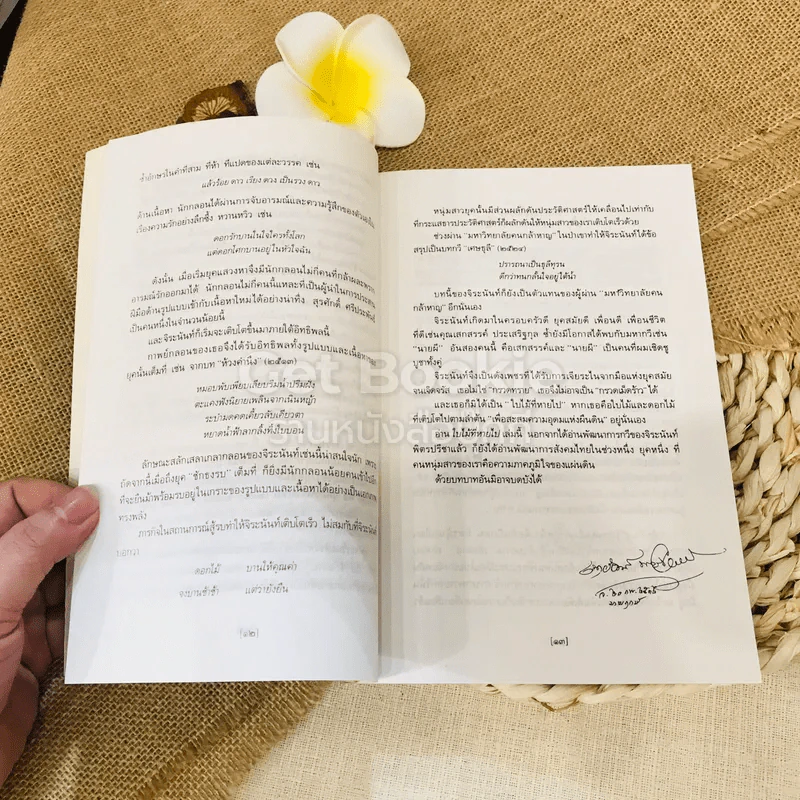 ซ้ำอักษรในคำที่สาม ที่ห้า ที่แปดของแต่ละวรรค เช่น
แล้วร้อย ดาว เรียง ดวง เป็นรวง ดาว
ด้านเนื้อหา นักกลอนได้ผ่านการจับอารมณ์และความรู้สึกของตัวเองใน
เรื่องความรักอย่างลึกซึ้ง หวานหวิว เช่น
ดอกรักบานในใจใครทั้งโลก
แต่ดอกโศกบานอยู่ในหัวใจฉัน
ดังนั้น เมื่อเริ่มยุคแสวงหาจึงมีนักกลอนไม่กี่คนที่กล้าผละพราก
อารมณ์รักออกมาได้ นักกลอนไม่กี่คนนี้แหละที่เป็นผู้นำในการประสาน
ฝีมือด้านรูปแบบเข้ากับเนื้อหาใหม่ได้อย่างน่าทึ่ง สุรศักดิ์ ศรีประพันธ์
เป็นคนหนึ่งในจำนวนน้อยนี้
และจิระนันท์ก็เริ่มจะเติบโตขึ้นมาภายใต้อิทธิพลนี้
กาพย์กลอนของเธอจึงได้รับอิทธิพลทั้งรูปแบบและเนื้อหาของ
ยุคนั้นเต็มที่ เช่น จากบท "ห้วงคำนึง" (๒๕๑๓)
หมอบพับเพียบเลียบริมน้ำปริ่มฝั่ง
ตะแคงฟังนิยายเพลินจากเนินหญ้า
ระบำมดคดเคี้ยวลับเดียวตา
หยาดน้ำฟ้าลากลิ้งทิ้งใบบอน
ลักษณะสลักเสลาเกลากลอนของจิระนันท์เช่นนี้น่าสนใจนัก เพราะ
ถัดจากนี้เมื่อถึงยุค "ชักธงรบ" เต็มที่ ก็ยิ่งมีนักกลอนน้อยคนเข้าไปอีก
ที่จะยืนม้าพร้อมรบอยู่ในเกราะของรูปแบบและเนื้อหาได้อย่างเป็นเอกภาพ
ทรงพลัง
ภารกิจในสถานการณ์สู้รบทำให้จิระนันท์เติบโตเร็ว ไม่สมกับที่จิระนันท์
บอกว่า
ดอกไม้ บานให้คุณค่า
จงบานช้าช้า แต่ว่ายั่งยืน
[๑๒]
หนุ่มสาวยุคนั้นมีส่วนผลักดันประวัติศาสตร์ให้เคลื่อนไปเท่ากับ
ที่กระแสธารประวัติศาสตร์ก็ผลักดันให้หนุ่มสาวของเราเติบโตเร็วด้วย
ช่วงผ่าน "มหาวิทยาลัยคนกล้าหาญ" ในป่าเขาทำให้จิระนันท์ได้ข้อ
สรุปเป็นบทกวี "เศษธุลี" (๒๕๒๔)
ปรารถนาเป็นธุลีทุรน
ดีกว่าทนกลั้นใจอยู่ใต้น้ำ
บทนี้ของจิระนันท์ก็ยังเป็นตัวแทนของผู้ผ่าน "มหาวิทยาลัยคน
กล้าหาญ" อีกนั่นเอง
จิระนันท์เกิดมาในครอบครัวดี ยุคสมัยดี เพื่อนดี เพื่อนชีวิต
ที่ดีเช่นคุณเสกสรรค์ ประเสริฐกุล ซ้ำยังมีโอกาสได้พบกับมหากวีเช่น
"นายผี" อันสองคนนี้ คือเสกสรรค์และ "นายผี" เป็นคนที่ผมเชิดชู
บูชาทั้งคู่
จิระนันท์จึงเป็นดั่งเพชรที่ได้รับการเจียระไนจากมือแห่งยุคสมัย
จนเจิดจรัส เธอไม่ใช่ "กรวดทราย" เธอจึงไม่อาจเป็น "กรวดเม็ดร้าว" ได้
และเธอก็มิได้เป็น "ใบไม้ที่หายไป" หากเธอคือใบไม้และดอกไม้
ที่เติบโตไปตามลำต้น "เพื่อสะสมความอุดมแห่งผืนดิน" อยู่นั่นเอง
อ่าน ใบไม้ที่หายไป เล่มนี้ นอกจากได้อ่านพัฒนาการกวีของจิระนันท์
พิตรปรีชาแล้ว ก็ยังได้อ่านพัฒนาการสังคมไทยในช่วงหนึ่ง ยุคหนึ่ง ที่
คนหนุ่มสาวของเราคือความภาคภูมิใจของแผ่นดิน
ด้วยบทบาทอันมิอาจบดบังได้
[๑๓]